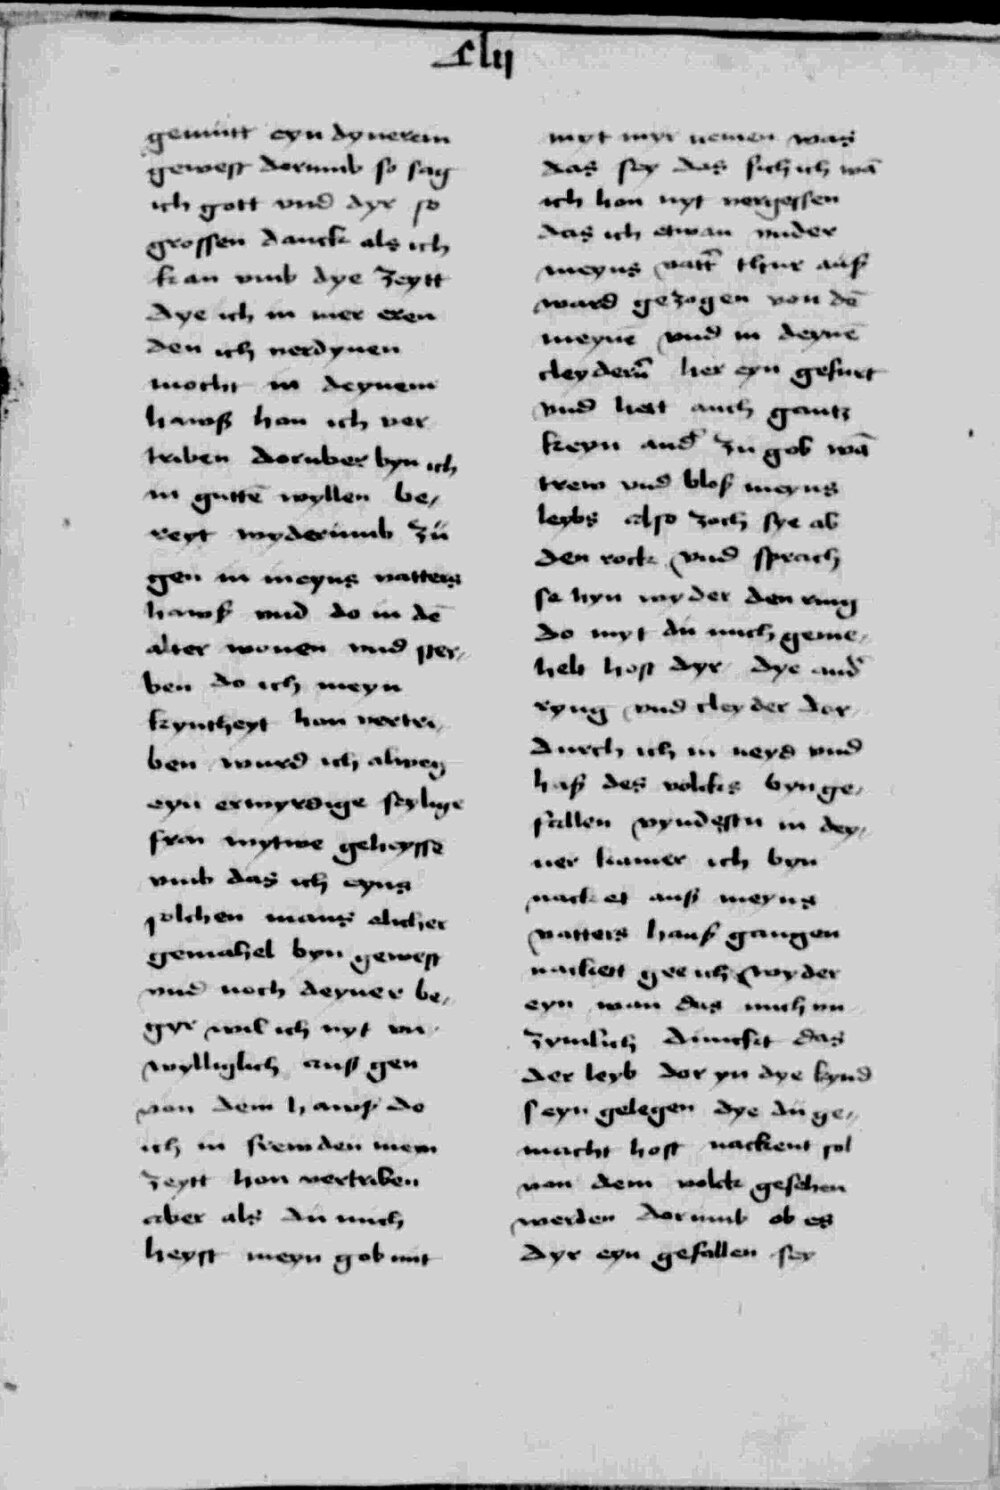 clij
gemütt eyn dynerein
gewest dorumb so sag
ich gott vnd dyr so
grossen danck als ich
kan vmb dye zeytt
dye ich in mer eren
den ich verdynen
mocht in deynem
hawß han ich ver
triben doruber byn ich
in guttē wyllen be,
reyt wyderumb zü
gen in meyns vatters
hawß vnd do in dē
alter wonen vnd ster,
ben do ich meyn
kyntheyt han vertri,
ben wurd ich alweg
eyn erwyrdige seylige
fraw wytwe geheysse
vmb das ich eyns
solchen mans elicher
gemahel byn gewest
vnd noch deyner be,
gyr wil ich nyt vn,
wylliglich auß gen
von dem hawß do
ich in frewden mein
zeytt han vertriben
aber als du mich
heyst meyn gob mit
myt myr nemen was
das sey das sich ich wā
ich han nyt vergessen
das ich etwan vnder
meyns vatt' thür auß
ward gezogen von dē
meynē vnd in deynē
cleyderñ her eyn gefurt
vnd hett auch gantz
keyn and' zu gob wā
trew vnd bloß meyns
leybs also zoch sye ab
den rock vnd sprach
se hyn wyder den ring
do myt du mich geme,
helt host dyr dye and'
ryng vnd cleyder dor,
durch ich in neyd vnd
haß des volcks byn ge,
fallen vyndestu in dey,
ner kamer ich byn
nacket auß meyns
vatters hauß gangen
nackett gee ich wyder
eyn wan das mich vn
zymlich duncket das
der leyb dor yn dye kynd
seyn gelegen dye du ge,
macht host nackent sol
von dem volck gesehen
werden dorumb ob es
dyr eyn gefallen sey